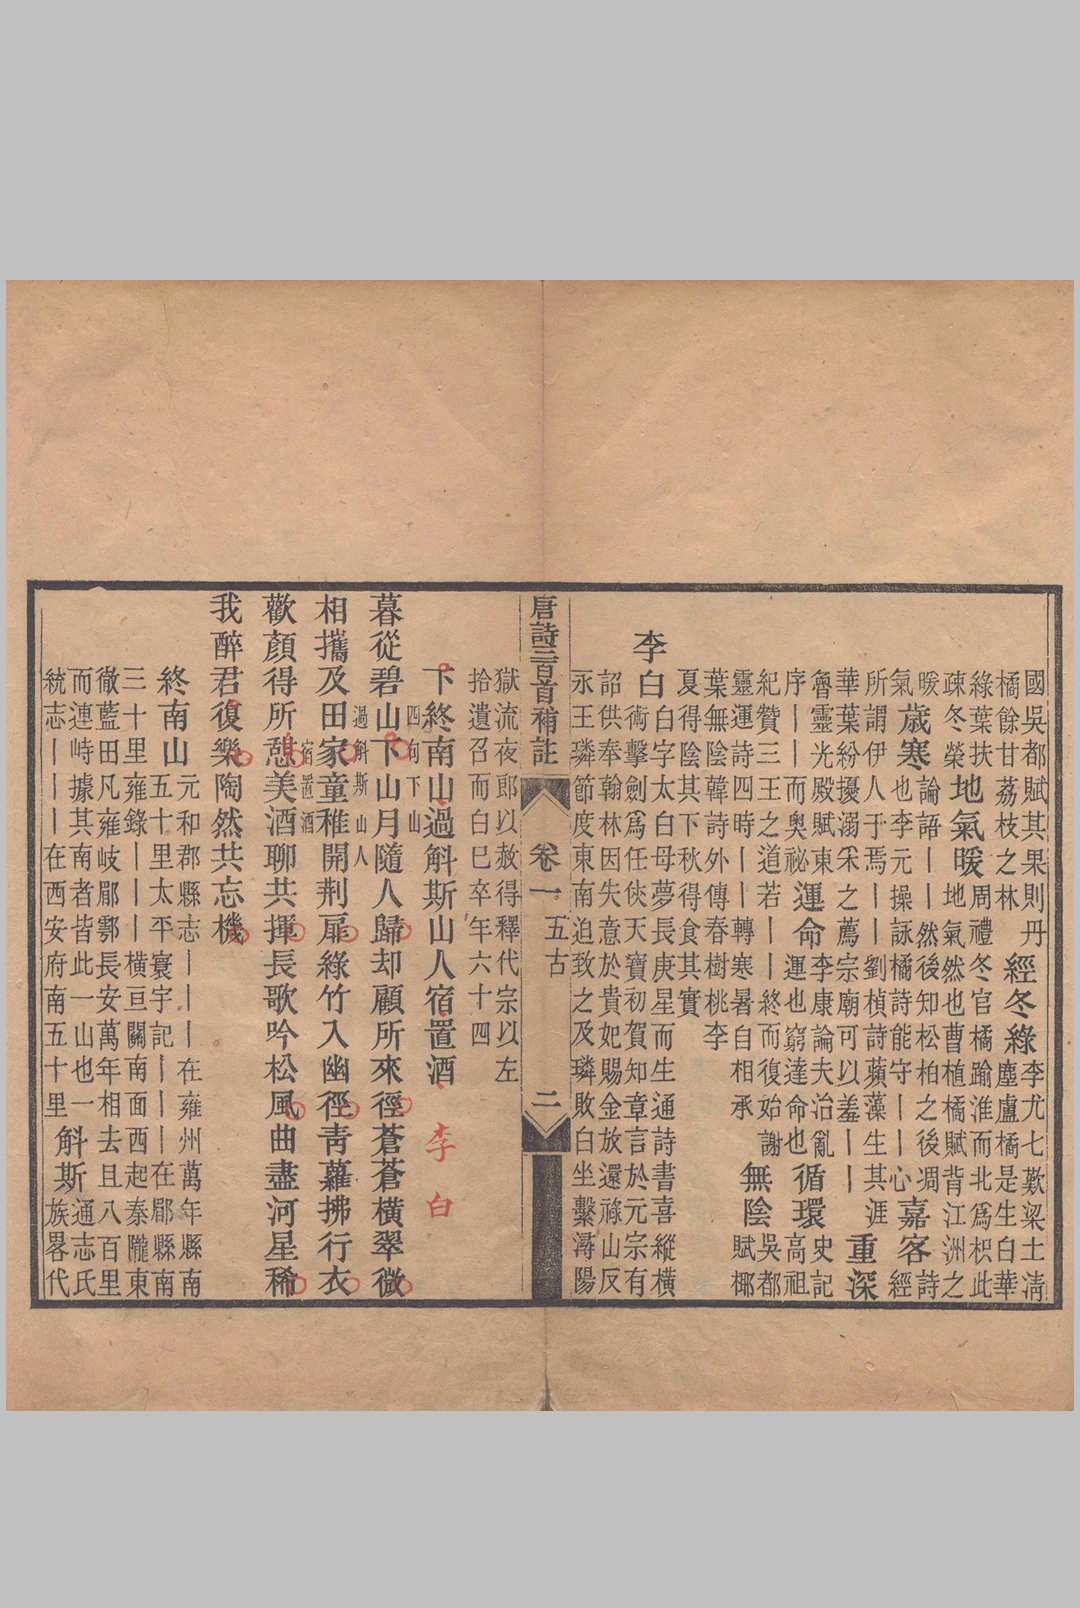 國吳都賦其果則丹
橘餘甘荔枝之林
經冬綠
李尤七歎梁土淸
塵盧橘是生白華
綠葉扶
疎冬榮
地氣暖
周禮冬官橘踰淮而北爲枳此
地氣然也曹植橘賦背江洲之
暖
氣
歲寒
論語丨丨然後知松柏之後凋
也李元操詠橘詩能守丨丨心
嘉客
詩
經
所謂伊人于焉丨丨劉楨詩蘋藻生其涯
華葉紛擾溺采之薦宗廟可以羞丨丨
重深
魯靈光殿賦東
序丨丨而奧祕
運命
李康論夫治亂
運也窮達命也
循環
史記
高祖
紀贊三王之道若丨丨終而復始謝
靈運詩四時丨丨轉寒暑自相承
無陰
吳都
賦椰
葉無陰韓詩外傳春樹桃李
夏得陰其下秋得食其實
李白
白字太白母夢長庚星而生通詩書喜縱橫
術擊劍爲任俠天寶初賀知章言於元宗有
詔供奉翰林因失意於貴妃賜金放還祿山反
永王璘節度東南迫致之及璘敗白坐繫潯陽
唐詩三百首補註
卷一 五古
二
獄流夜郎以赦得釋代宗以左
拾遺召而白已卒年六十四
下終南山過斛斯山人宿置酒 李白
暮從碧山下山月隨人歸却顧所來徑蒼蒼橫翠微
四句下山
相攜及田家童稚開荆扉綠竹入幽徑靑蘿拂行衣
過斛斯山人
歡顏得所憩美酒聊共揮長歌吟松風曲盡河星稀
宿置酒
我醉君復樂陶然共忘機
終南山
元和郡縣志丨丨丨在雍州萬年縣南
五十里太平寰宇記丨丨丨在郿縣南
三十里雍錄丨丨丨橫亘關南面西起秦隴東
徹藍田凡雍岐郿鄠長安萬年相去且八百里
而連峙據其南者皆此一山也一
統志丨丨丨在西安府南五十里
斛斯
通志氏
族畧代